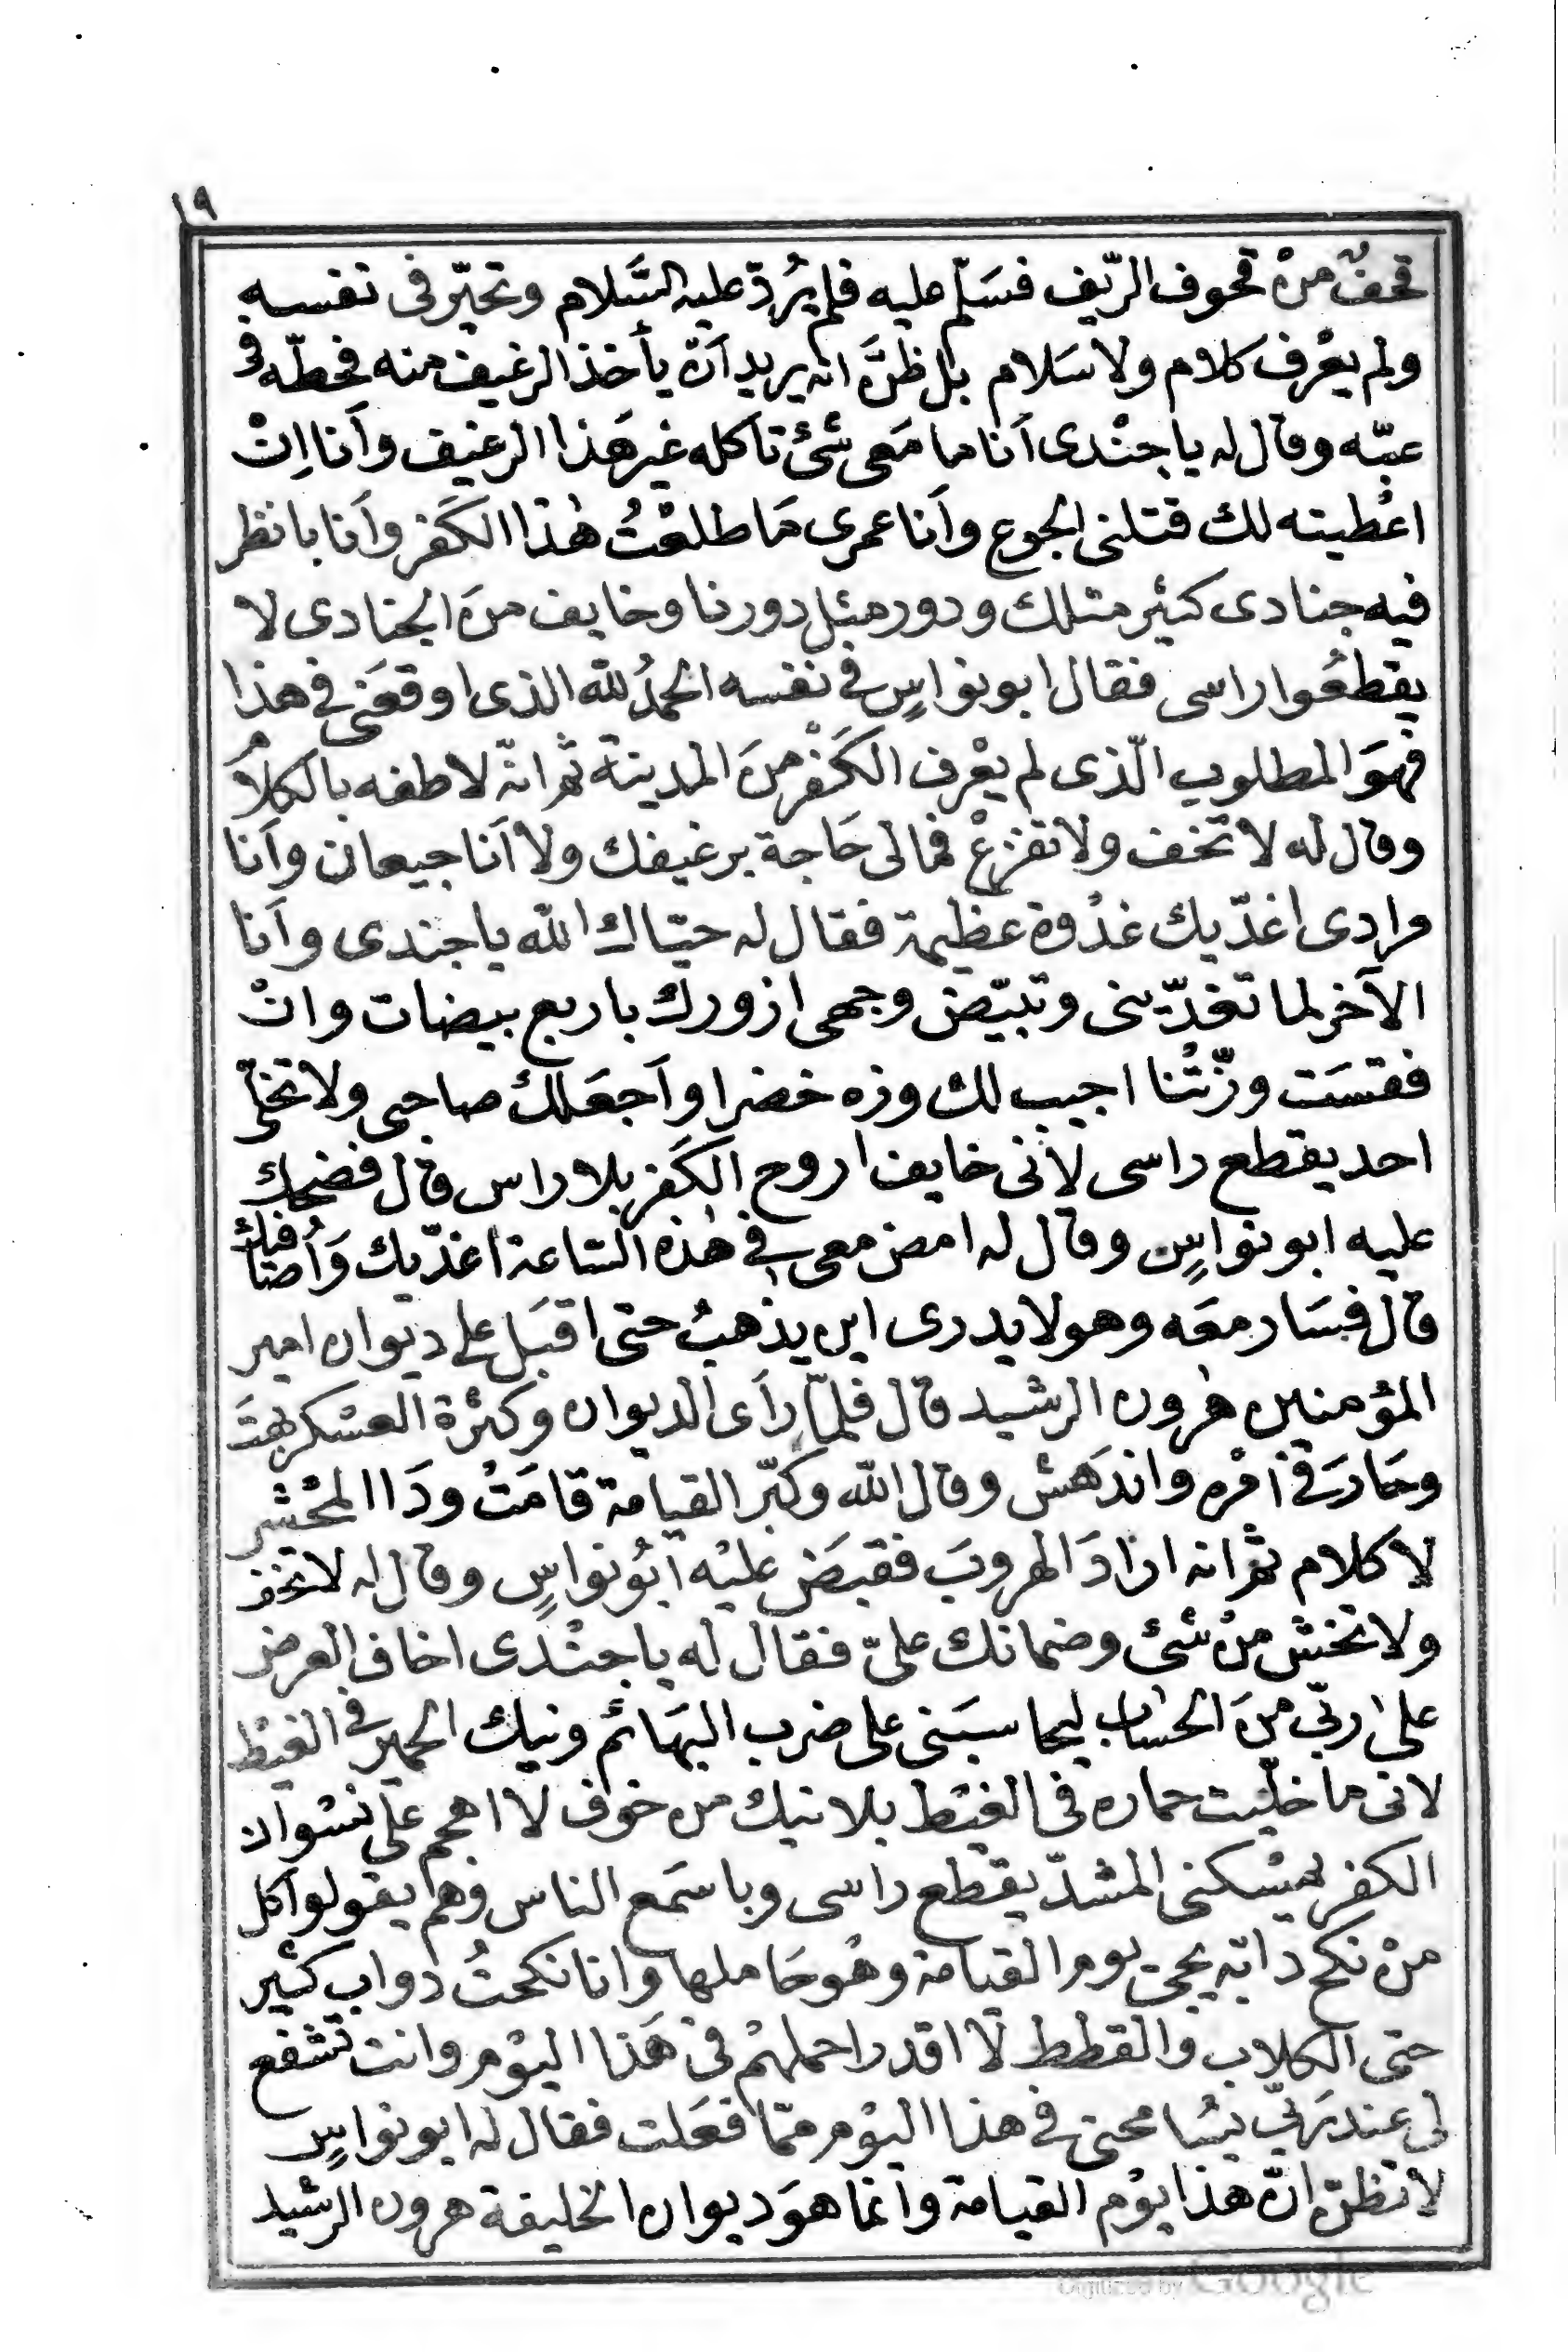 ١٩
قحفٌ منْ قحوف الرّيف فسَلّم عليه فلم يُردّ عليه السَّلام وتحيّر فى نفسه
ولم يعْرف كلام ولا سَلام بل ظنَّ انه يريد اَن يأخذ الرغيف منه فحطّه فى
عبّه وقال له يا جنْدى اَنا ما مَعى شئ تاكله غير هَذا الرغيف واَنا اِنْ
اعْطيته لك قتلنى الجوع واَنا عمرى مَا طلعْتُ هٰذا الكَفر واَنا بانظر
فيه جنادى كثير مثلك ودور مثل دورنا وخايف منَ الجنادى لا
يقطعُوا راسى فقال ابو نواسٍ فى نفسه الحمدُ لله الذى اوقعَنى فى هذا
فهوَ المطلوب الّذى لم يعْرف الكَفْر منَ المدينة ثم انّه لاطفه بالكلام
وقال له لا تخف ولا تفزعْ فما لى حَاجة برغيفك ولا اَنا جيعان واَنا
مرادى اغدّيك غدْوة عظيمة فقال له حيّاك الله يا جندى واَنا
الآخر لما تغدّينى وتبيّض وجهى ازورك باربع بيضات وانْ
فقسَت وزّتْنا اجيب لك وزه خضرا واَجعَلك صاحبى ولا تخلّى
احد يقطع راسى لاَنى خايف اروح الكَفر بلا راس قال فضحك
عليه ابو نواسٍ وقال له امض معى فى هٰذه السّاعة اغدّيك وَاُصافيك
قال فسَار معَه وهو لا يدرى اين يذهبُ حتى اقبَل على ديوان امير
المؤمنين هٰرون الرشيد قال فلمّا رآَى الديوان وكثرة العسْكر بهتَ
وحَارَ فى اَمْره واندهَش وقال الله وكبّر القيامة قامَتْ ودَا المحْشر
لا كلام ثم انه ارَادَ الهروبَ فقبضَ عليْه اَبُو نواسٍ وقال له لا تخف
ولا تخش منْ شئ وضمانك علىّ فقال له يا جنْدى اخاف العرض
على ربّى منَ الحسَاب ليحاسبَنى على ضرب البهَائم ونيك الحمير فى الغيْط
لانى ما خلّيت حماره فى الغيْط بلا نيك من خوف لا اهجم على نسْوان
الكفر يمْسكنى المشدّ يقطع راسى وباسمَع الناس وهم يقولوا كل
منْ نكح دابّه يجئ يوم القيامة وهُو حَاملها وانا نكحتُ دواب كثير
حتى الكلاب والقطط لا اقدر احملهمْ فى هَذا اليوْم وانت تشْفع
لى عند رَبّى يسَامحنى فى هذا اليوْم ممّا فعَلت فقال له ابو نواسٍ
لا تظنّ انَّ هذا يوْم القيامة وانما هوَ ديوان الخليفة هرون الرشيد
Digitized by Google